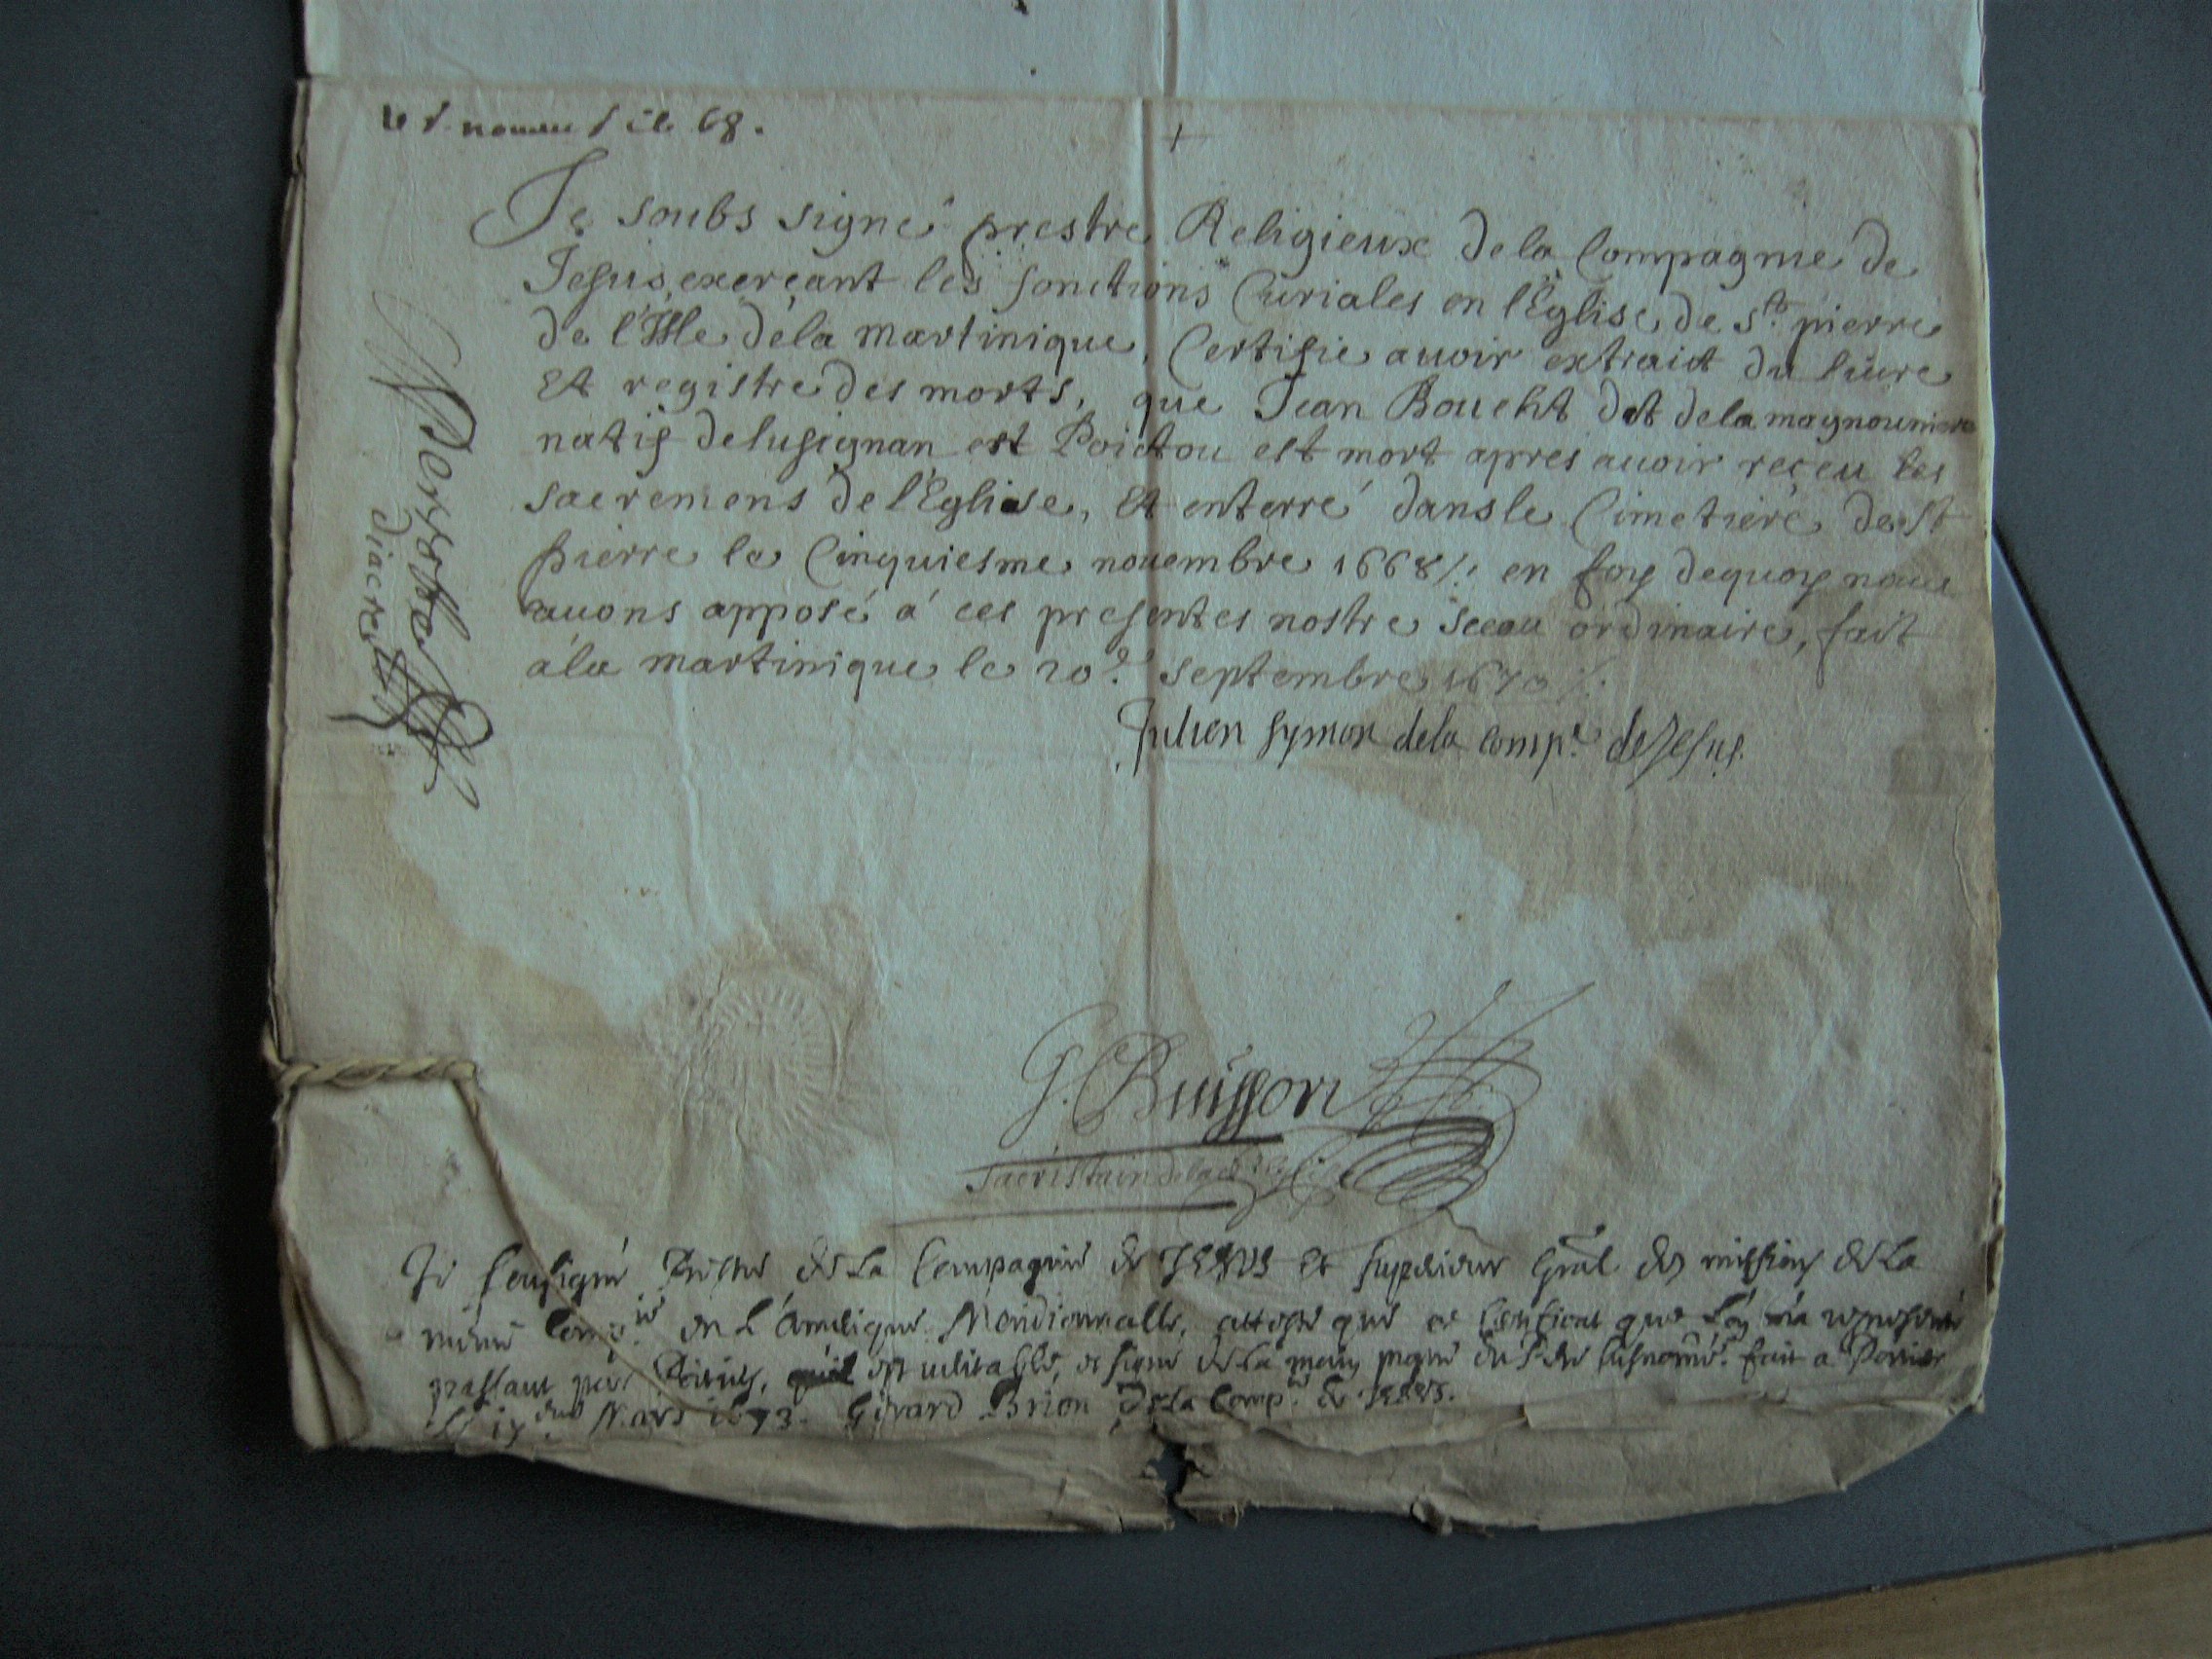 le 5 novem 1668.
+
Je soubs signé prestre Religieux de la Compagnie de
Jesus, exerçant les fonctions Curiales en l'Eglise de St. pierre
de l'Isle de la martinique, Certifie auoir extraict du liure
Et registre des morts, que Jean Boucht dit de la maynouniere
natif de lusignan est Poictou est mort apres auoir reçeu les
sacremens de l'Eglise, Et enterré dans le Cimetiere de St
pierre le Cinquiesme nouembre 1668 /. en foy dequoy nous
auons apposé á ces presentes nostre sceau ordinaire, fait
ála martinique le 20e. septembre 1670 /.
Julien symon de la compe. de Jesus.
diacre
G. Buisson
Sacristain de la
Je soussigné Prestre de la Compagnie de JESUS et superieur Gnal des missions de La
mesme Compie en L'Amerique Meridionnalle, atteste que ce Certificat que l'on m'a representé
passant par Poitiers, est veritable, et signé de la main propre du P. de susnommé. fait a Poitiers
Mars 1673. Gerard Brion De La Comp. de JESUS.